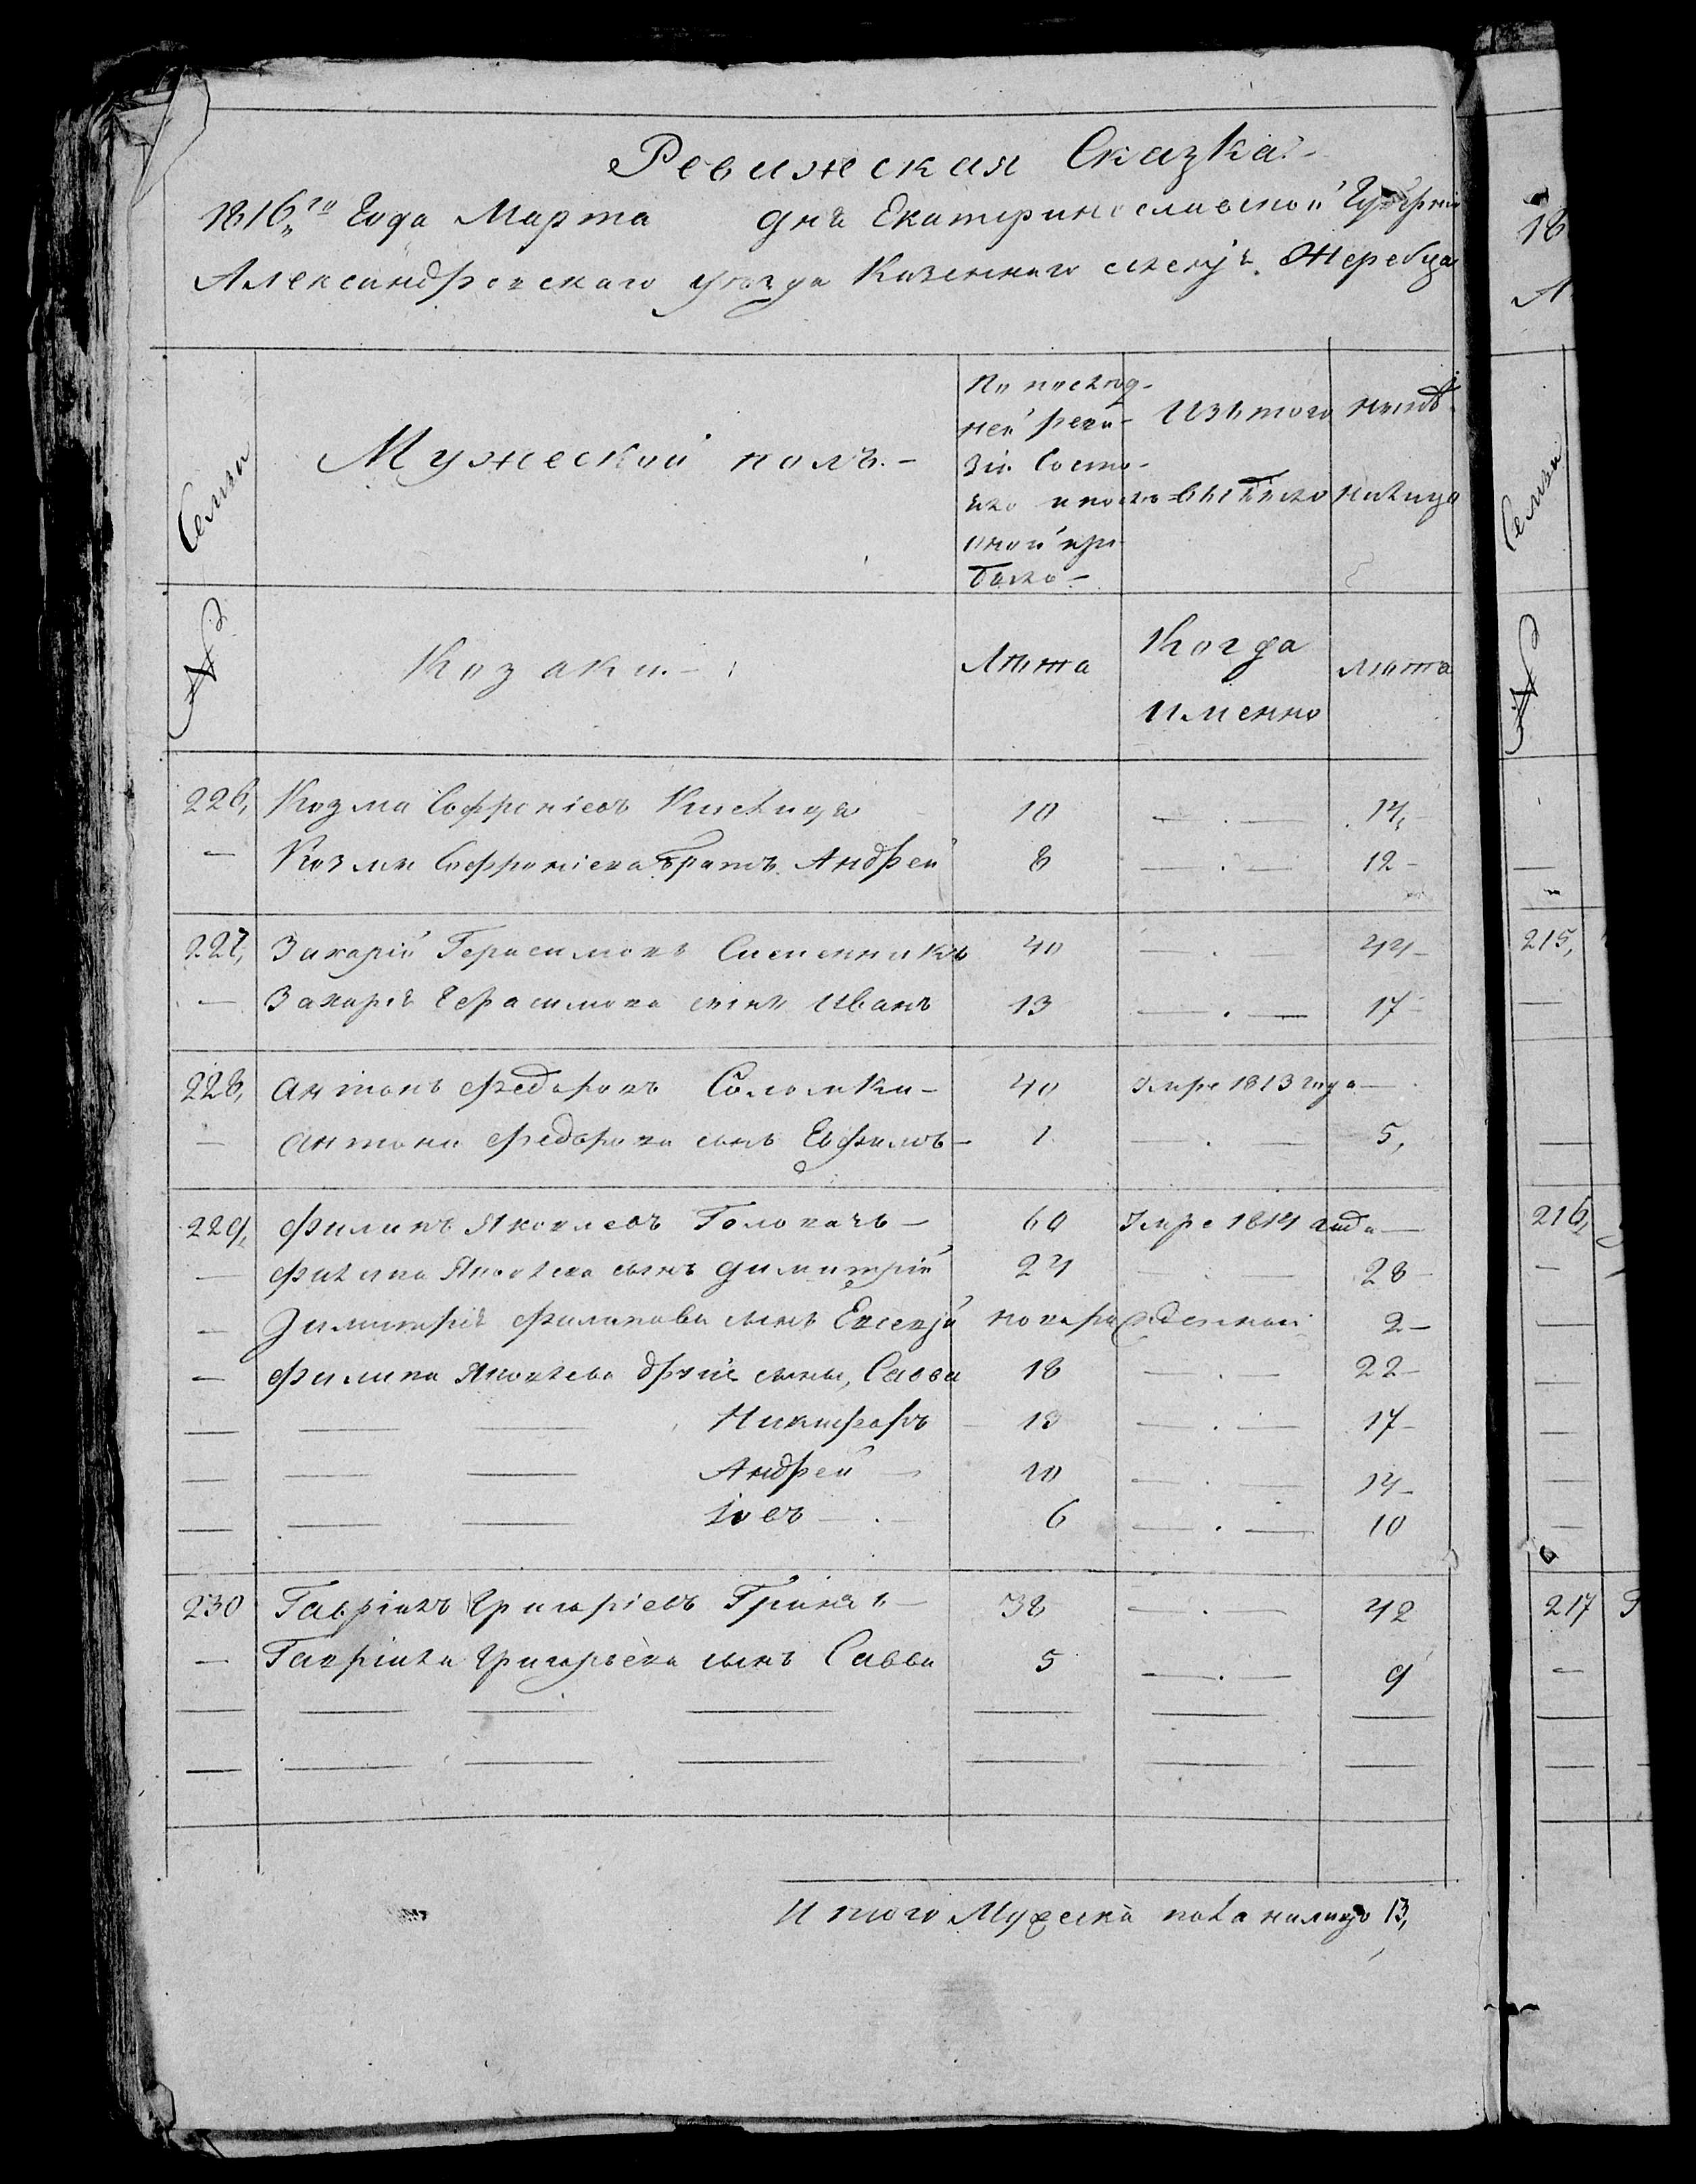 Ревижеская Сказка
1816го Года Марта дня Екатеринославской Губернии
Александровского уезда Казенного Жеребца
Семьи
Мужеской полъ.
По послед-
ней реви-
зіи состо-
яло и после
оной при-
было
Изъ того
выбыло
Ныне
налицо
№
Козаки.
Лѣта
Когда
именно
Лѣта
226, Козма Софроніевъ 10 — . — 14,
— Козмы Софроніева братъ Андрей 8 — . — 12
227, Захарій Герасимовъ 40 — . — 44
— Захарія Герасимова сынъ Иванъ 13 — . — 17
228, Антонъ Федоровъ Соломка 40 Умре 1813 года —
— Антона Федорова сынъ Евфимъ 1 — . — 5,
229, Филипъ Яковлевъ Головачъ 60 Умре 1814 года —
— Филипа Яковлева сынъ Димитрій 24 — . — 28
— Димитрія Филипова сынъ новорожденный 2
— Филипа Яковлева другіе сыны, Савва 18 — . — 22
— — — Никифоръ 13 — . — 17
— — — Андрей 10 — . — 14
— — — Іовъ 6 — . — 10
230 Гавріилъ Григоріевъ 38 — . — 42
— Гавріила Григорьева сынъ Савва 5 — . — 9
Итого Мужеска пола налицо 13,
18
А
Семьи
№
215,
216,
217